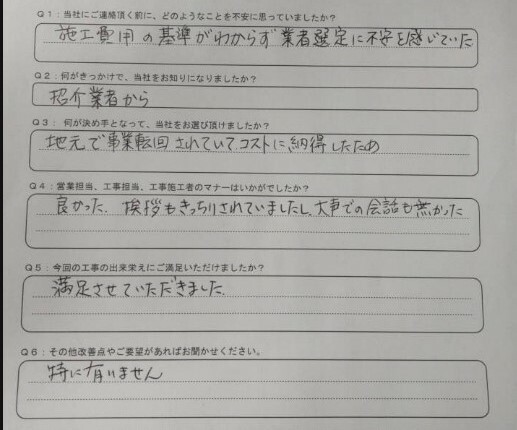 Q1：当社にご連絡頂く前に、どのようなことを不安に思っていましたか？
施工費用の基準がわからず業者選定に不安を感じていた
Q2：何がきっかけで、当社をお知りになりましたか？
招介業者から
Q3： 何が決め手となって、当社をお選び頂けましたか？
地元で事業転回されていてコストに納得したため
Q4：営業担当、工事担当、工事施工者のマナーはいかがでしたか？
良かった．挨拶もきっちりされていましたし、大声での会話も無かった
Q5：今回の工事の出来栄えにご満足いただけましたか？
満足させていただきました．
Q6：その他改善点やご要望があればお聞かせください。
特に有いません